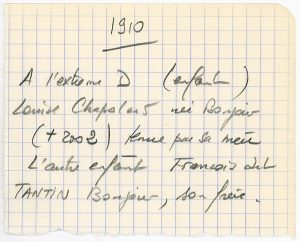 1910
A l'extreme D (enfant)
Louise Chapolard née Bonjour
(+ 2002) tenue par sa mère
L'autre enfant Francois dit
TANTIN Bonjour, son frère.